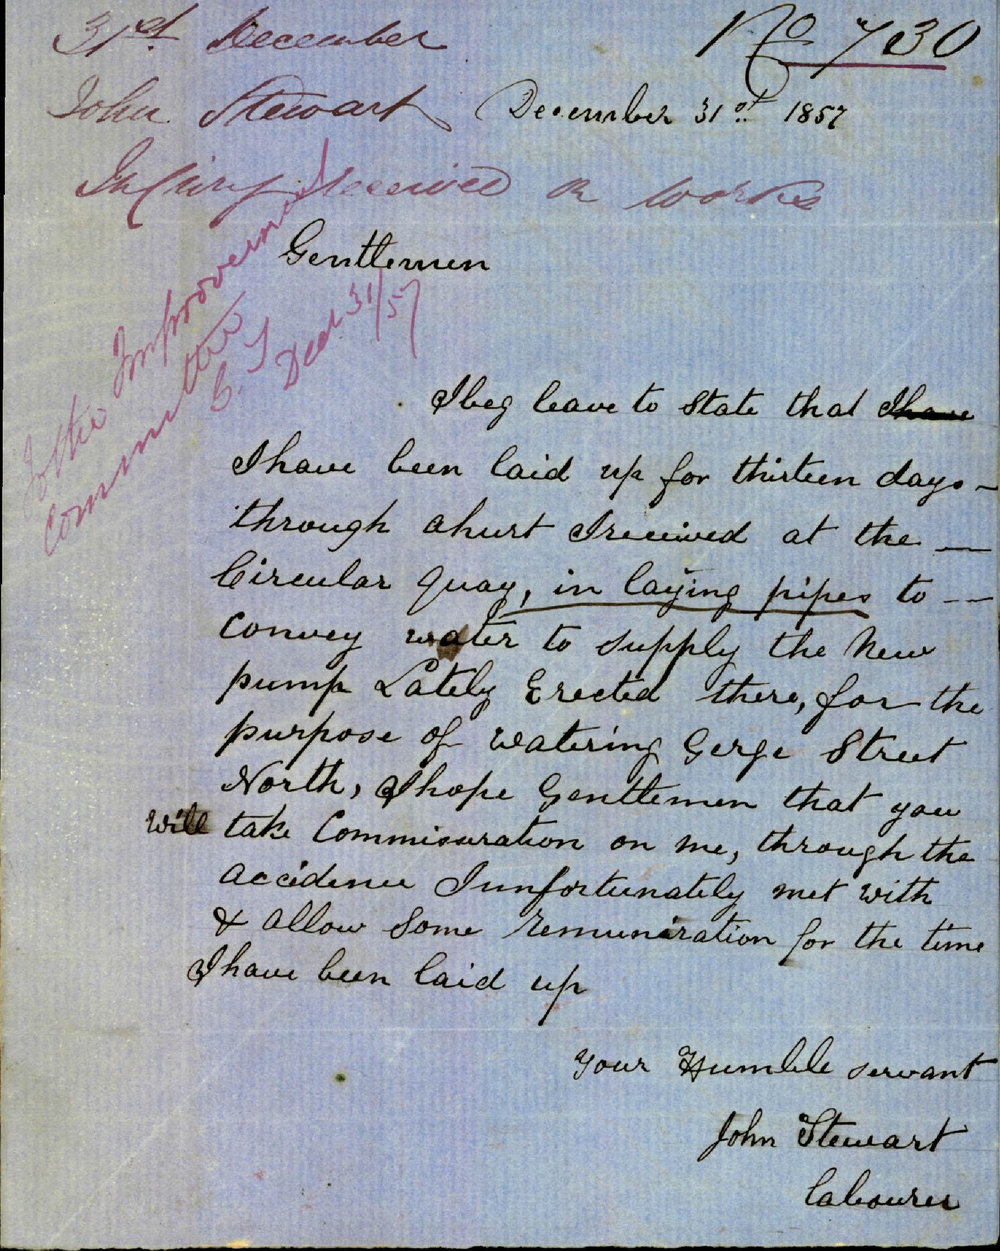 31st December
No 730
John Stewart
December 31st 1857
Injury received on works
Gentlemen
To the Improvement
Committee
C. T
Decr 31/57
I beg leave to state that I have
I have been laid up for thirteen days -
through a hurt I received at the —
Circular Quay, in laying pipes to —
Convey water to supply the New
pump Lately Erected there, for the
purpose of Watering Gerge Street
North, I hope Gentlemen that you
Will take Commiseration on me, through the
accidence I unfortunately met with
& allow Some remuniration for the time
I have been laid up
Your Humble servant
John Stewart
Labourer